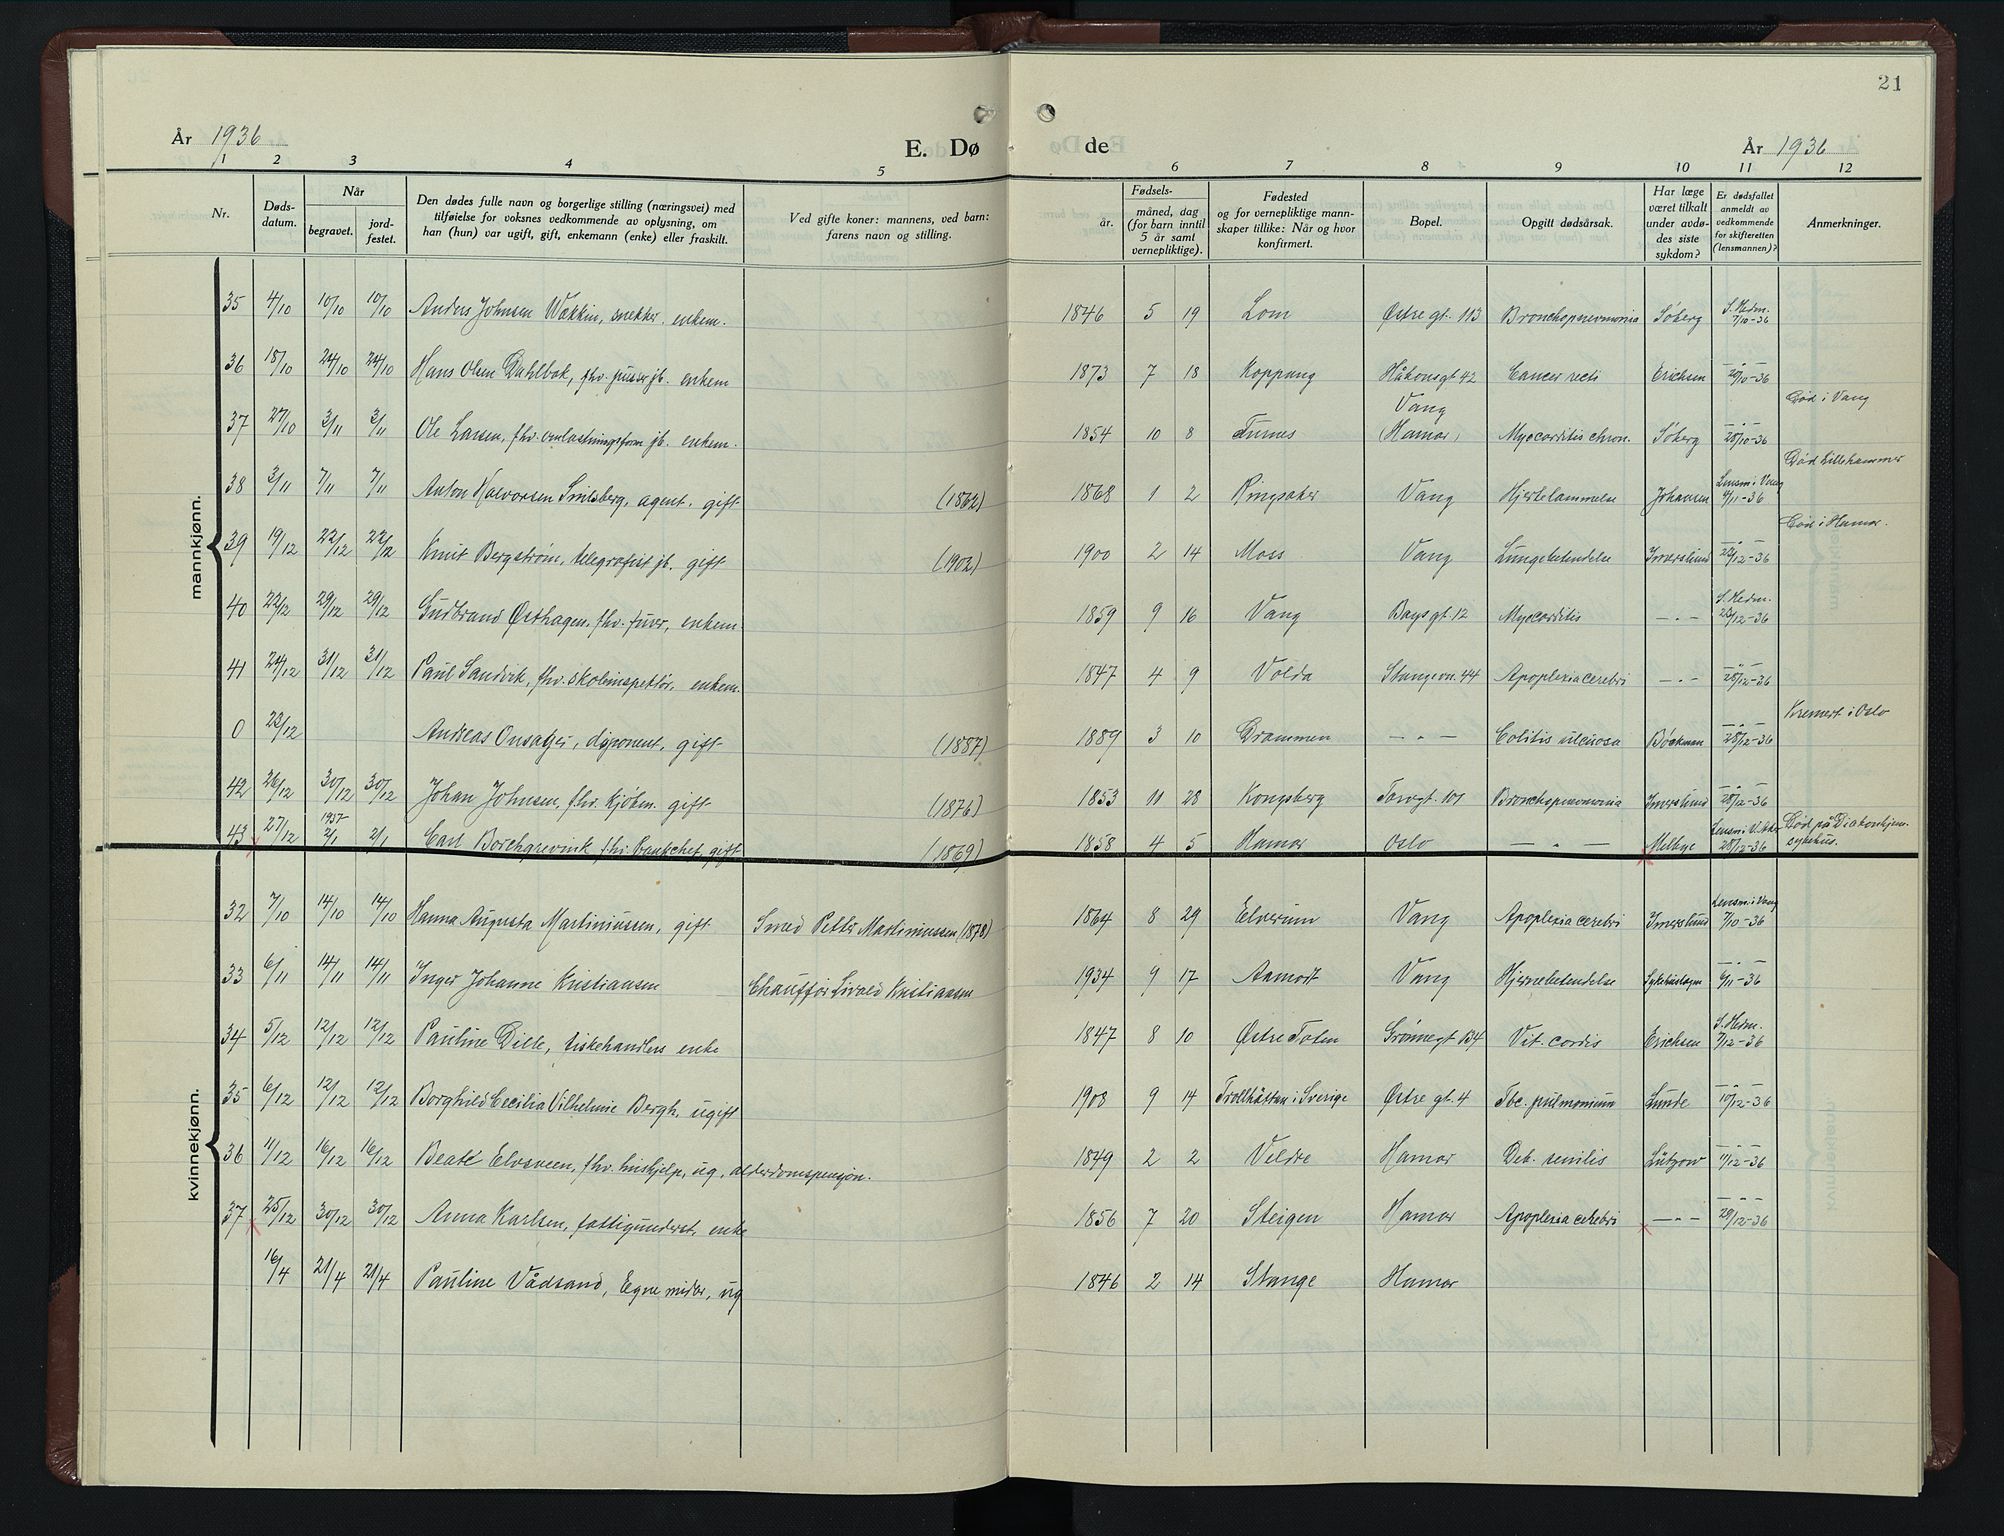 21
År 1936
E. Dø de
År 1936
1 2 3 4 5 6 7 8 9 10 11 12
Nr.
Døds-
datum.
Når
begravet.
jord-
festet.
Den dødes fulle navn og borgerlige stilling (næringsvei) med
tilføielse for voksnes vedkommende av oplysning, om
han (hun) var ugift, gift, enkemann (enke) eller fraskilt.
Ved gifte koner: mannens, ved barn:
farens navn og stilling.
Fødsels-
år.
måned, dag
(for barn inntil
5 år samt
vernepliktige).
Fødested
og for vernepliktige mann-
skaper tillike: Når og hvor
konfirmert.
Bopel.
Opgitt dødsårsak.
Har læge
været tilkalt
under avdø-
des siste
sykdom?
Er dødsfallet
anmeldt av
vedkommende
for skifteretten
(lensmannen)?
Anmerkninger.
mannkjønn.
35 4/10 10/10 10/10 Anders Johnsen Wækkin, snekker, enkem. 1846 5 19 Lom Østre gt. 113 Bronchopneumonia Søberg S. Hedm. 7/10-36
36 18/10 24/10 24/10 Hans Olsen Dahlbak, fhv. pusser jb. enkem 1873 7 18 Koppang Håkonsgt 42 Cancer recti Erichsen -"- 20/10-36
37 27/10 3/11 3/11 Ole Larsen, fhv. omlastningsform jb. enkem. 1854 10 8 Furnes Vang (Hamar) Myocarditis chron. Søberg -"- 28/10-36 Død i Vang
38 3/11 7/11 7/11 Anton Halvorsen Smilsberg, agent, gift (1862) 1868 1 2 Ringsaker Vang Hjertelammelse Johansen Lensm i Vang 4/11-36 Død Lillehammer
39 19/12 22/12 22/12 Knut Bergstrøm, telegrafist jb. gift (1902) 1900 2 14 Moss Vang Lungebetendelse Imerslund -"- 22/12-36 Død i Hamar.
40 22/12 29/12 29/12 Gudbrand Østhagen, fhv. fuver, enkem. 1859 9 16 Vang Bagsgt 12 Myocarditis -"- S. Hedm. 26/12-36
41 24/12 31/12 31/12 Paul Sandvik, fhv. skoleinspektør, enkem. 1847 4 9 Volda Stangevn. 44 Apoplexia cerebri -"- -"- 28/12-36
0 23/12 Andreas Onsager, disponent, gift (1887) 1889 3 10 Drammen -"- Colitis ulcerosa Bøckman -"- 28/12-36 Kremert i Oslo
42 26/12 30/12 30/12 Johan Johnsen, fhv. kjøbm. gift (1876) 1853 11 28 Kongsberg Torvgt. 101 Bronchopneumonia Imerslund -"- 28/12-36
43 27/12 1937 2/1 2/1 Carl Borchgrevink fhv. gift (1869) 1858 4 5 Hamar Oslo -"- Melbye Lensm i V. Aker 28/12-36 Død på Diakonhjem. sykehus.
kvinnekjønn.
32 7/10 14/10 14/10 Hanna Augusta Martiniussen, gift Smed Petter Martiniussen (1878) 1864 8 29 Elverum Vang Apoplexia cerebri Imerslund Lensm. i Vang 7/10-36
33 6/11 14/11 14/11 Inger Johanne Kristiansen Chauffør Sivald Kristiansen 1934 9 17 Aamodt Vang Hjernebetendelse Sykehuslægen -"- 6/11-36
34 5/12 12/12 12/12 Pauline Dille, fiskehandlers enke 1847 8 10 Østre Toten Grønnegt 134 Vit. cordis Erichsen S. Hedm. 7/12-36
35 6/12 12/12 12/12 Borghild Cecilia Vilhelmine Bergh, ugift 1908 9 14 Trollhättan i Sverige Østre gt. 4 Tbc. pulmonum Lunde -"- 10/12-36
36 11/12 16/12 16/12 Beate Elvsveen, fhv. hushjelp, ug, alderdomspensjon. 1849 2 2 Veldre Hamar Deb. senilis Lützow -"- 11/12-36
37 25/12 30/12 30/12 Anna Karlsen, fattigunderst, enke 1856 7 20 Steigen Hamar Apoplexia cerebri -"- -"- 29/12-36
16/4 21/4 21/4 Pauline Vådsand, Egne midler, ug 1846 2 14 Stange Hamar